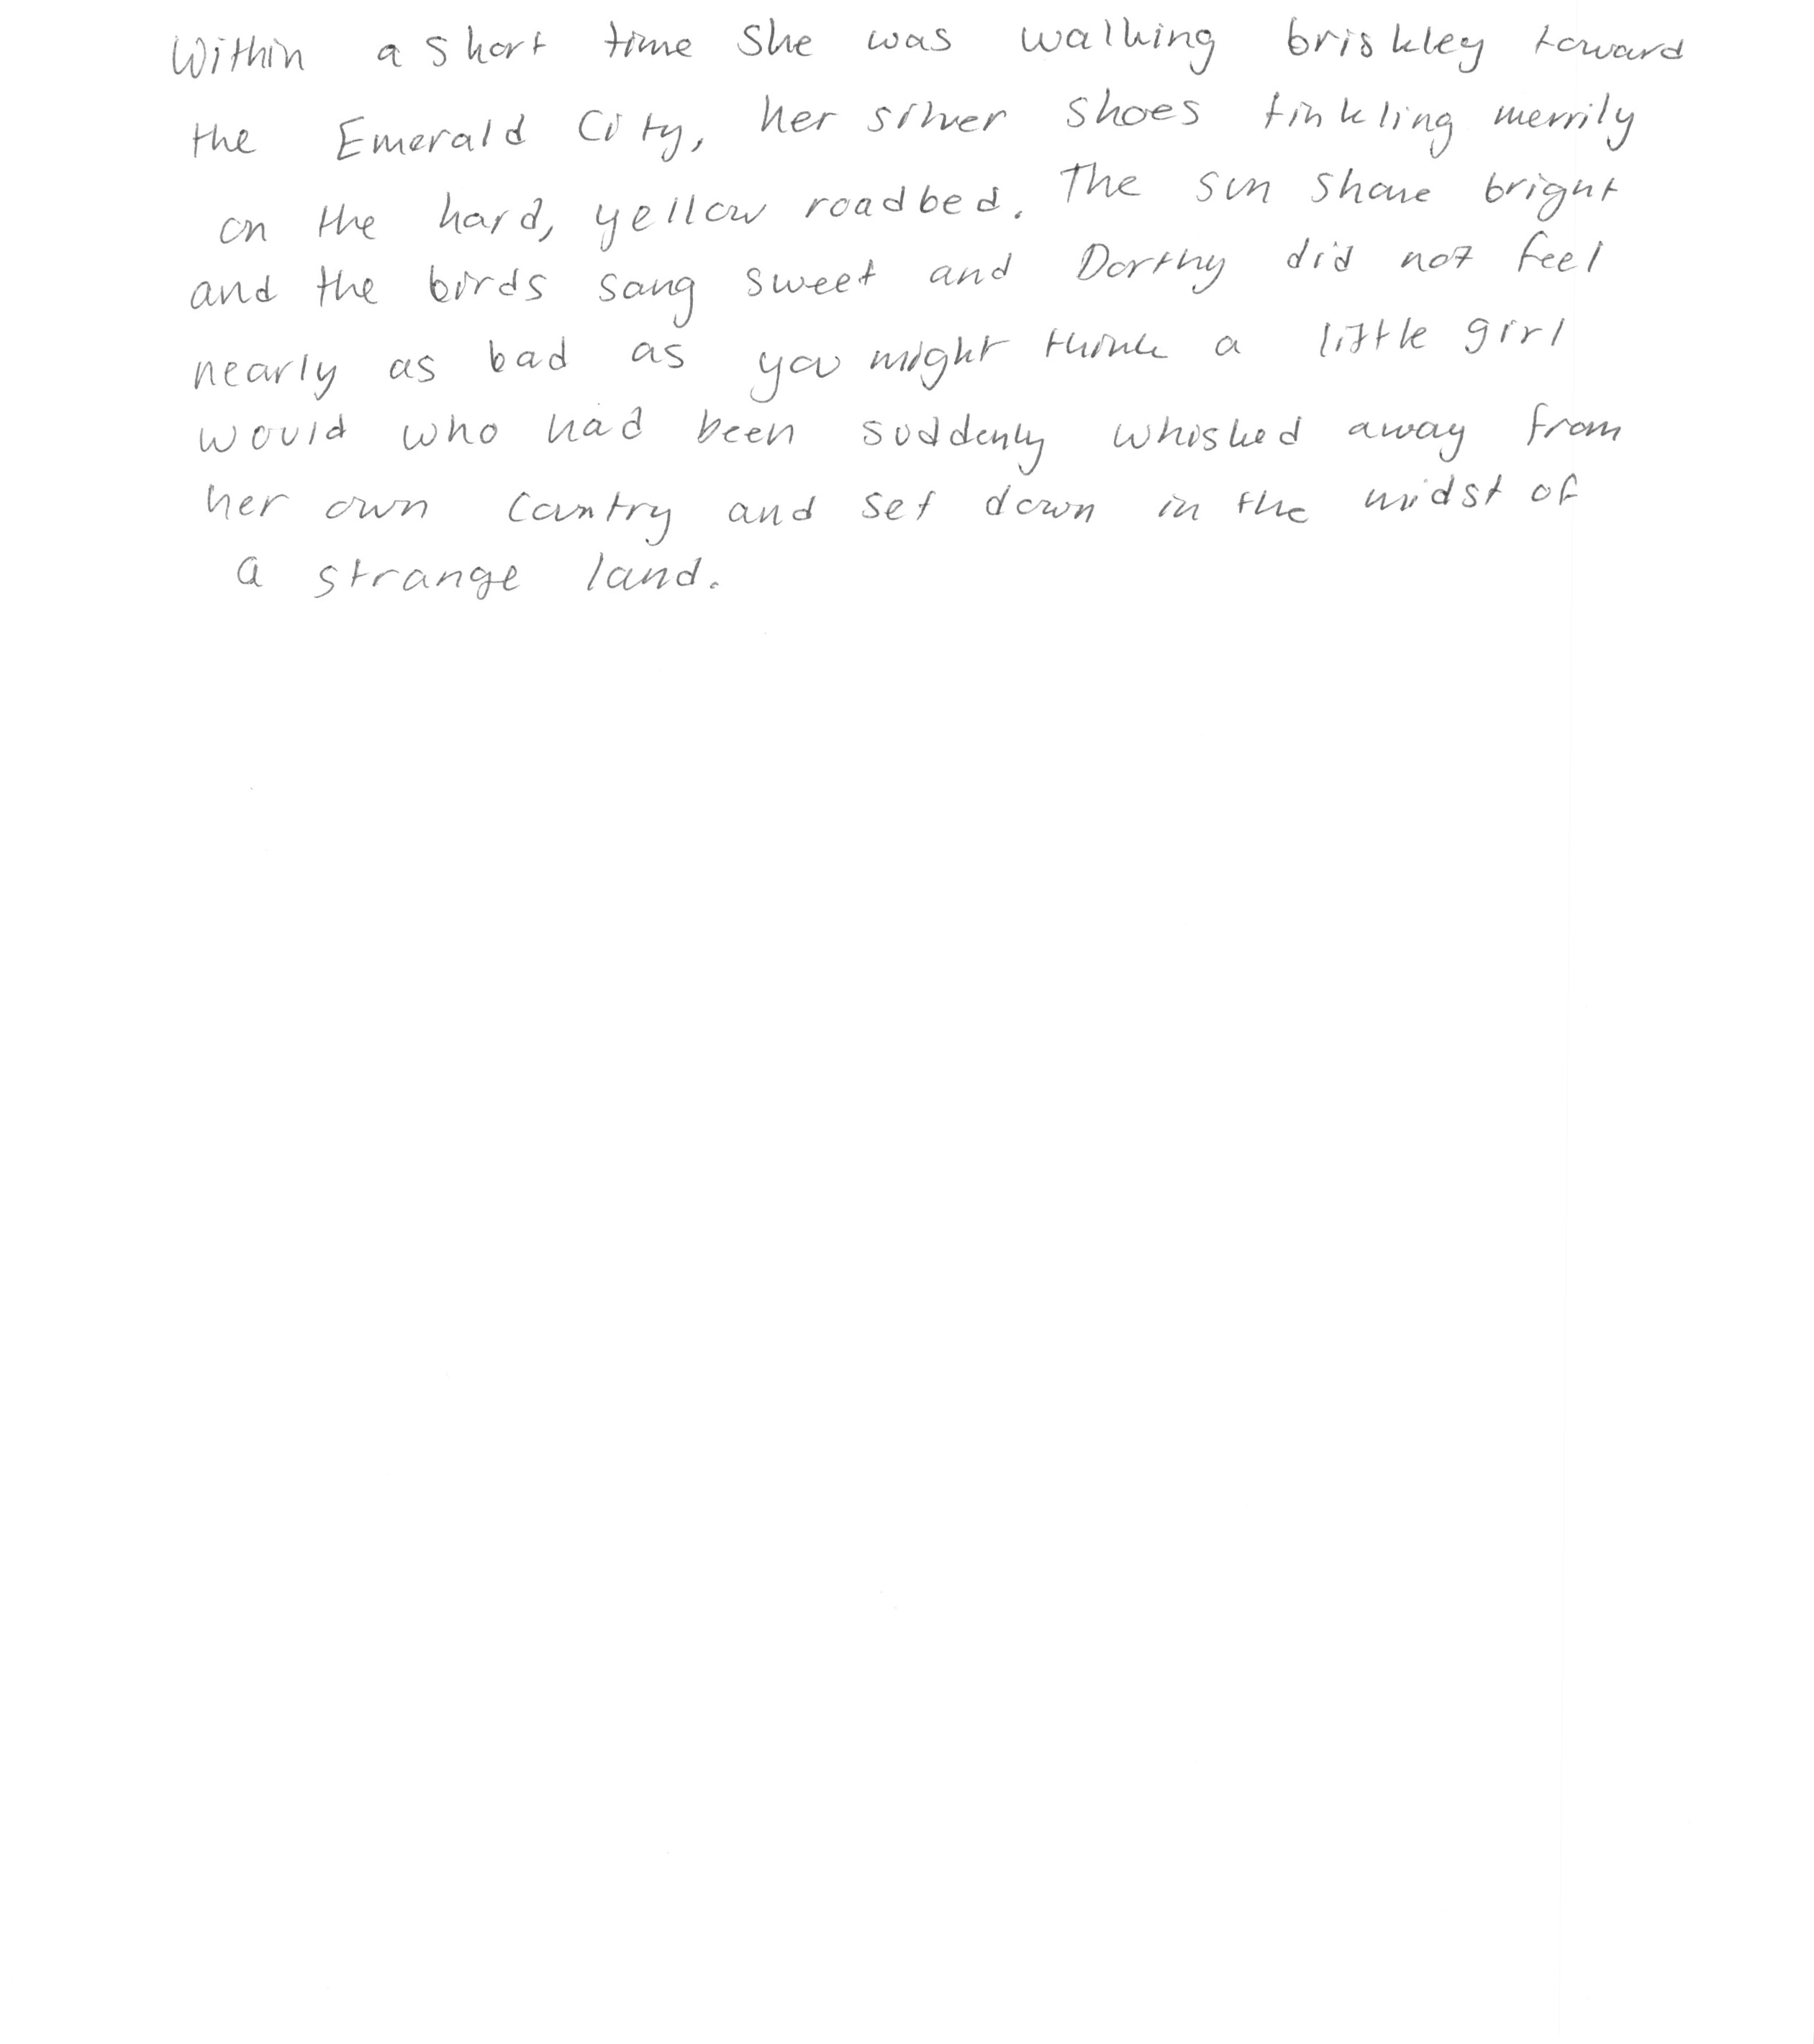 Within a short time she was walking briskley toward
the Emerald City, her silver shoes tinkling merrily
on the hard, yellow roadbed. The sun shone bright
and the birds sang sweet and Dorthy did not feel
nearly as bad as you might think a little girl
would who had been suddenly whisked away from
her own country and set down in the midst of
a strange land.